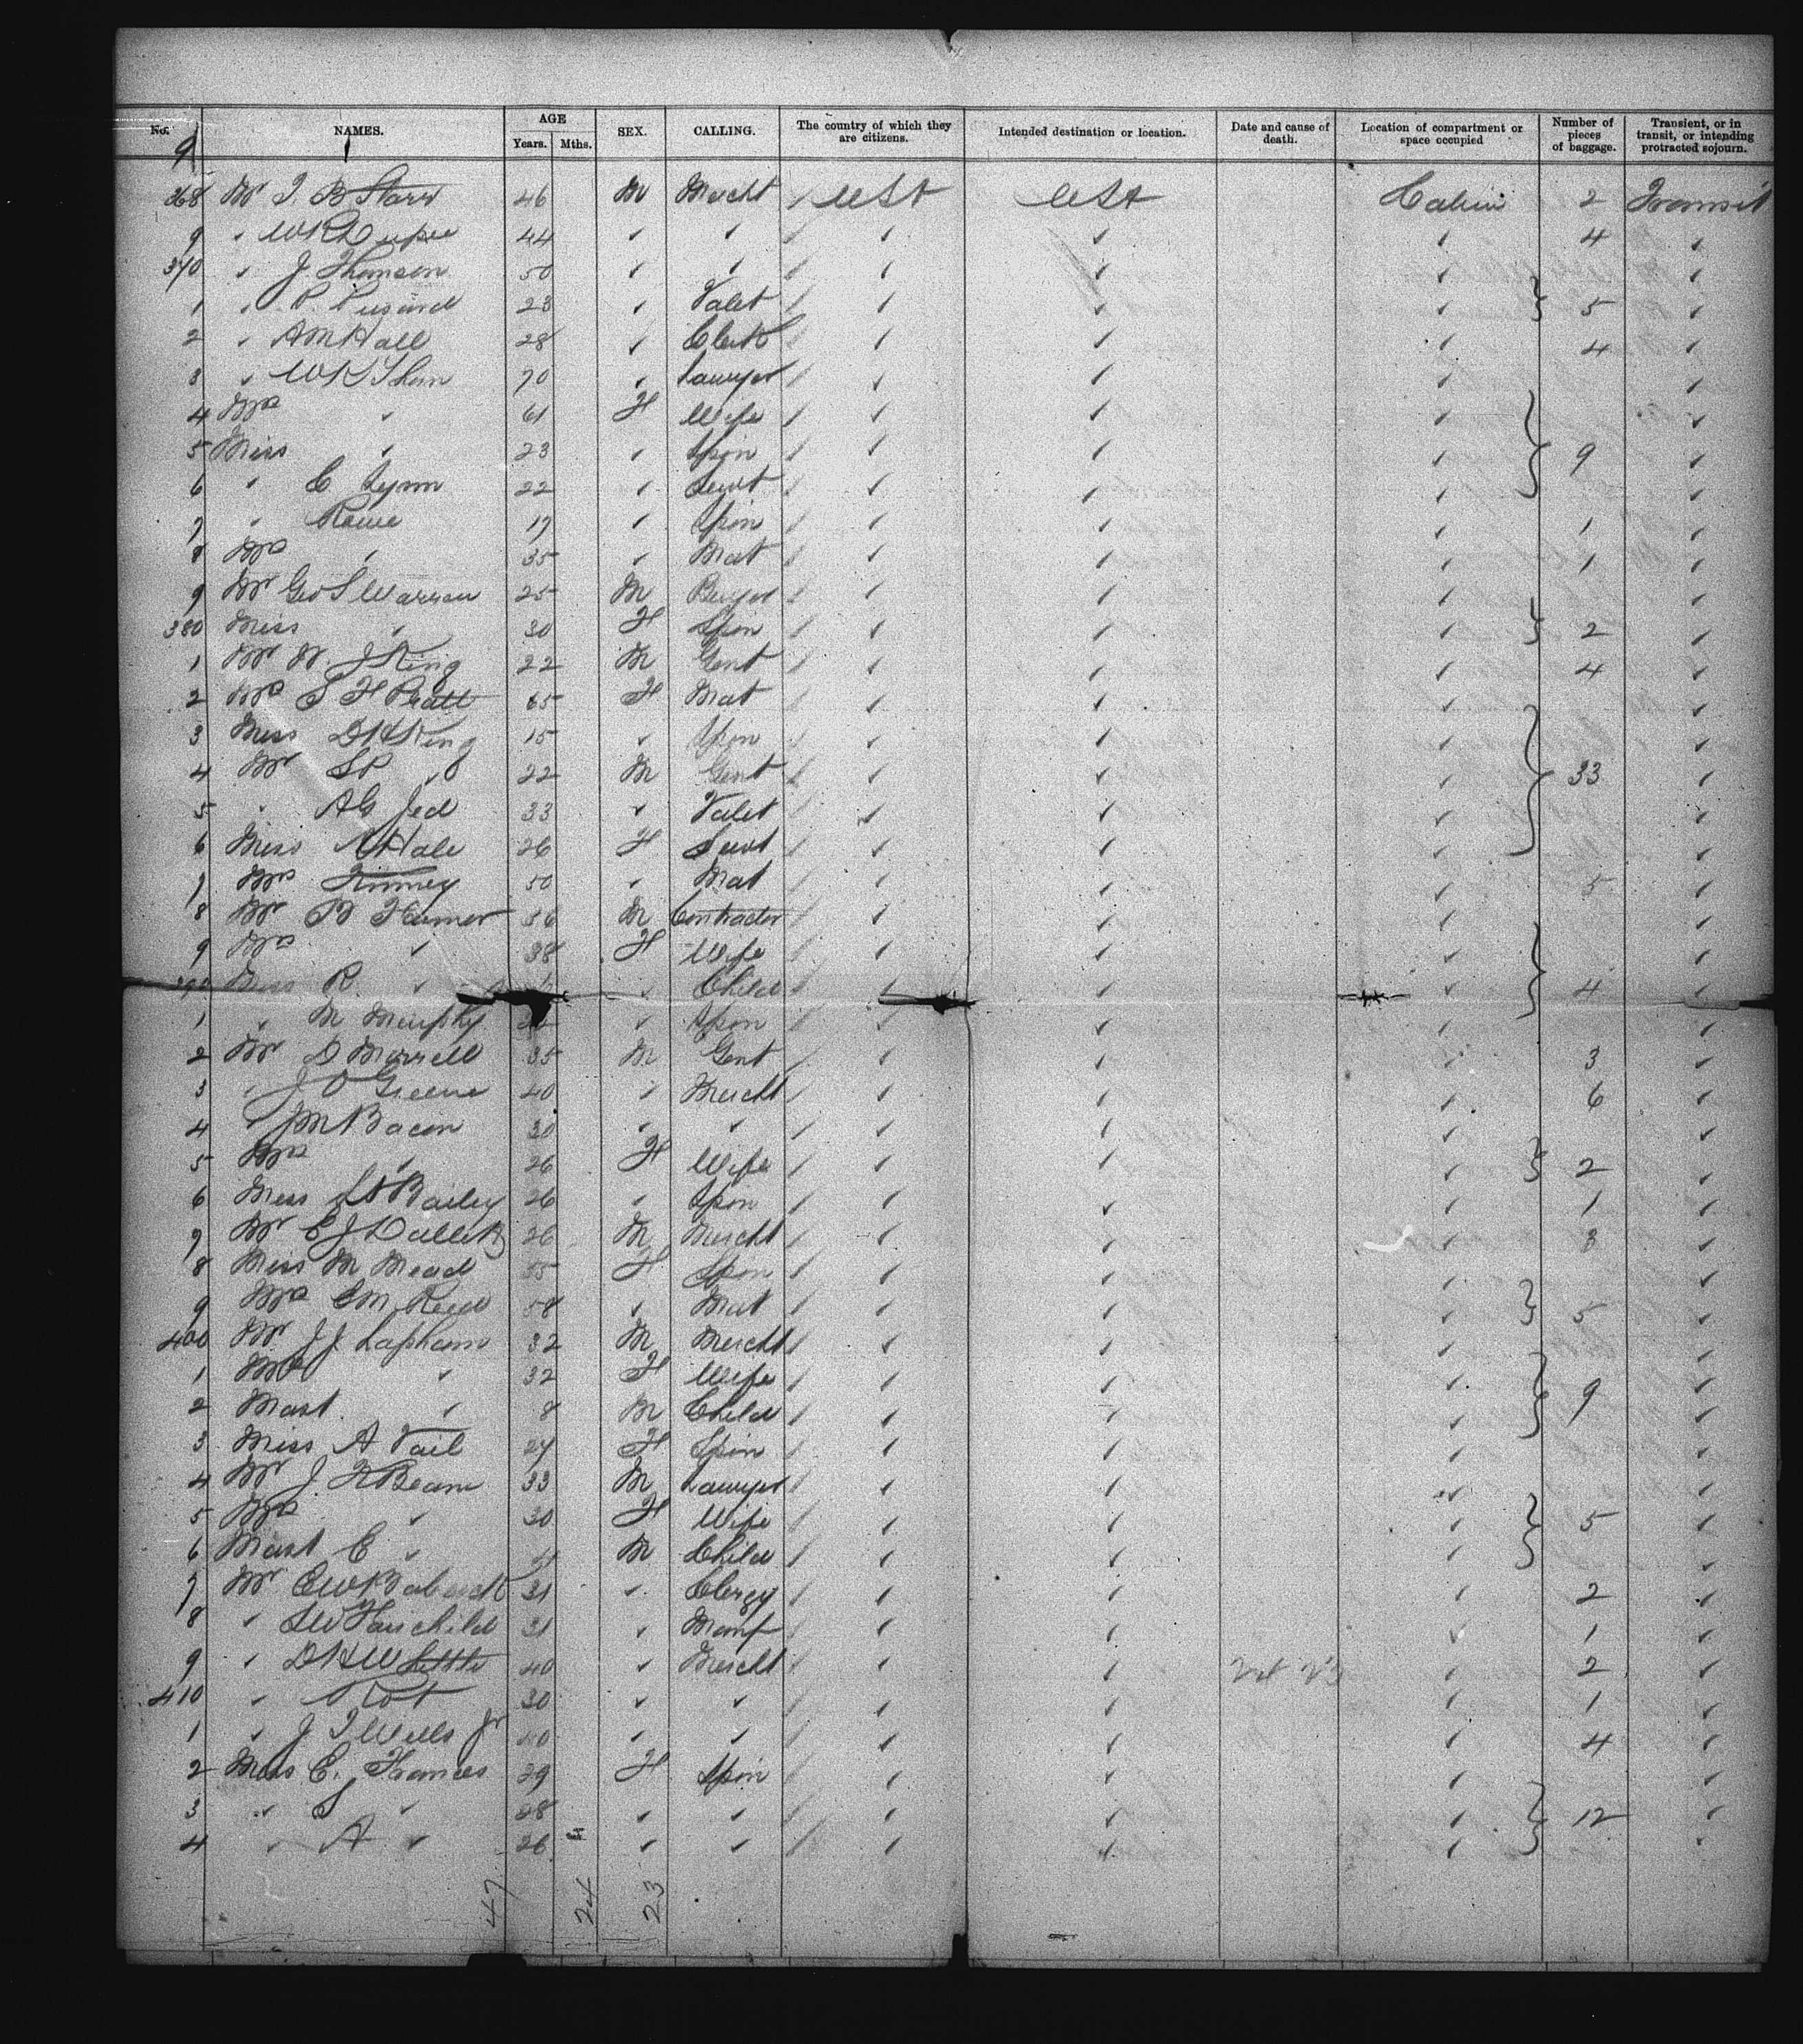 No. NAMES. AGE Years. Mths. SEX. CALLING. The country of which they are citizens. Intended destination or location. Date and cause of death. Location of compartment or space occupied Number of pieces of baggage. Transient, or in transit, or intending protracted sojourn.
9
368 Mr J. B Starr 46 M Mercht USA USA Cabin 2 Transit
9 " 44 ✓ ✓ ✓ ✓ ✓ 4 ✓
370 " J Thomson 50 ✓ ✓ ✓ ✓ ✓ ✓
1 " P. 23 ✓ Valet ✓ ✓ ✓ 5 ✓
2 " AM Hall 28 ✓ Clerk ✓ ✓ ✓ 4 ✓
3 " 70 ✓ Lawyer ✓ ✓ ✓ ✓
4 Mrs " 61 F Wife ✓ ✓ ✓ ✓
5 Miss " 23 ✓ Spin ✓ ✓ ✓ 9 ✓
6 " C Lynn 22 ✓ Servt ✓ ✓ ✓ ✓
7 " 17 ✓ Spin ✓ ✓ ✓ 1 ✓
8 Mrs " 35 ✓ Mat ✓ ✓ ✓ 1 ✓
9 Mr Geo S Warren 25 M ✓ ✓ ✓ ✓
380 Miss " 30 F Spin ✓ ✓ ✓ 2 ✓
1 Mr W. J King 22 M Gent ✓ ✓ ✓ 4 ✓
2 Mrs S H Pratt 65 F Mat ✓ ✓ ✓ ✓
3 Miss DK King 15 ✓ Spin ✓ ✓ ✓ ✓
4 Mr SP " 22 M Gent ✓ ✓ ✓ 33 ✓
5 " AG 33 ✓ Valet ✓ ✓ ✓ ✓
6 Miss Hale 26 F Servt ✓ ✓ ✓ ✓
7 Mrs Finney 50 ✓ Mat ✓ ✓ ✓ 5 ✓
8 Mr B Hamer 36 M Contractor ✓ ✓ ✓ ✓
9 Mrs " 38 F Wife ✓ ✓ ✓ ✓
390 Miss R " ✓ Child ✓ ✓ ✓ 4 ✓
1 " M Murphy ✓ Spin ✓ ✓ ✓ ✓
2 Mr D Morrell 35 M Gent ✓ ✓ ✓ 3 ✓
3 " J O Greene 40 ✓ Mercht ✓ ✓ ✓ 6 ✓
4 " JM Bacon 30 ✓ ✓ ✓ ✓ ✓ ✓
5 Mrs " 26 F Wife ✓ ✓ ✓ 2 ✓
6 Miss Bailey 26 ✓ Spin ✓ ✓ ✓ 1 ✓
7 Mr E J 26 M Mercht ✓ ✓ ✓ 3 ✓
8 Miss M Mead 55 F Spin ✓ ✓ ✓ ✓
9 Mrs EM Reed 58 ✓ Mat ✓ ✓ ✓ 5 ✓
400 Mr J J Lapham 32 M Mercht ✓ ✓ ✓ ✓
1 Mrs " 32 F Wife ✓ ✓ ✓ ✓
2 Mast. " 8 M Child ✓ ✓ ✓ 9 ✓
3 Miss A Vail 27 F Spin ✓ ✓ ✓ ✓
4 Mr J. Beam 33 M Lawyer ✓ ✓ ✓ ✓
5 Mrs " 30 F Wife ✓ ✓ ✓ 5 ✓
6 Mast E " M Child ✓ ✓ ✓ ✓
7 Mr EW 31 ✓ Clergy ✓ ✓ ✓ 2 ✓
8 " SW Fairchild 31 ✓ Manf ✓ ✓ ✓ 1 ✓
9 " Little 40 ✓ Mercht ✓ ✓ ✓ 2 ✓
410 " 30 ✓ ✓ ✓ ✓ ✓ 1 ✓
1 " J Wells Jr 40 ✓ ✓ ✓ ✓ ✓ 4 ✓
2 Miss C. Frances 29 F Spin ✓ ✓ ✓ ✓
3 " S " 28 ✓ ✓ ✓ ✓ ✓ 12 ✓
4 " A " 26 ✓ ✓ ✓ ✓ ✓
47 24 23